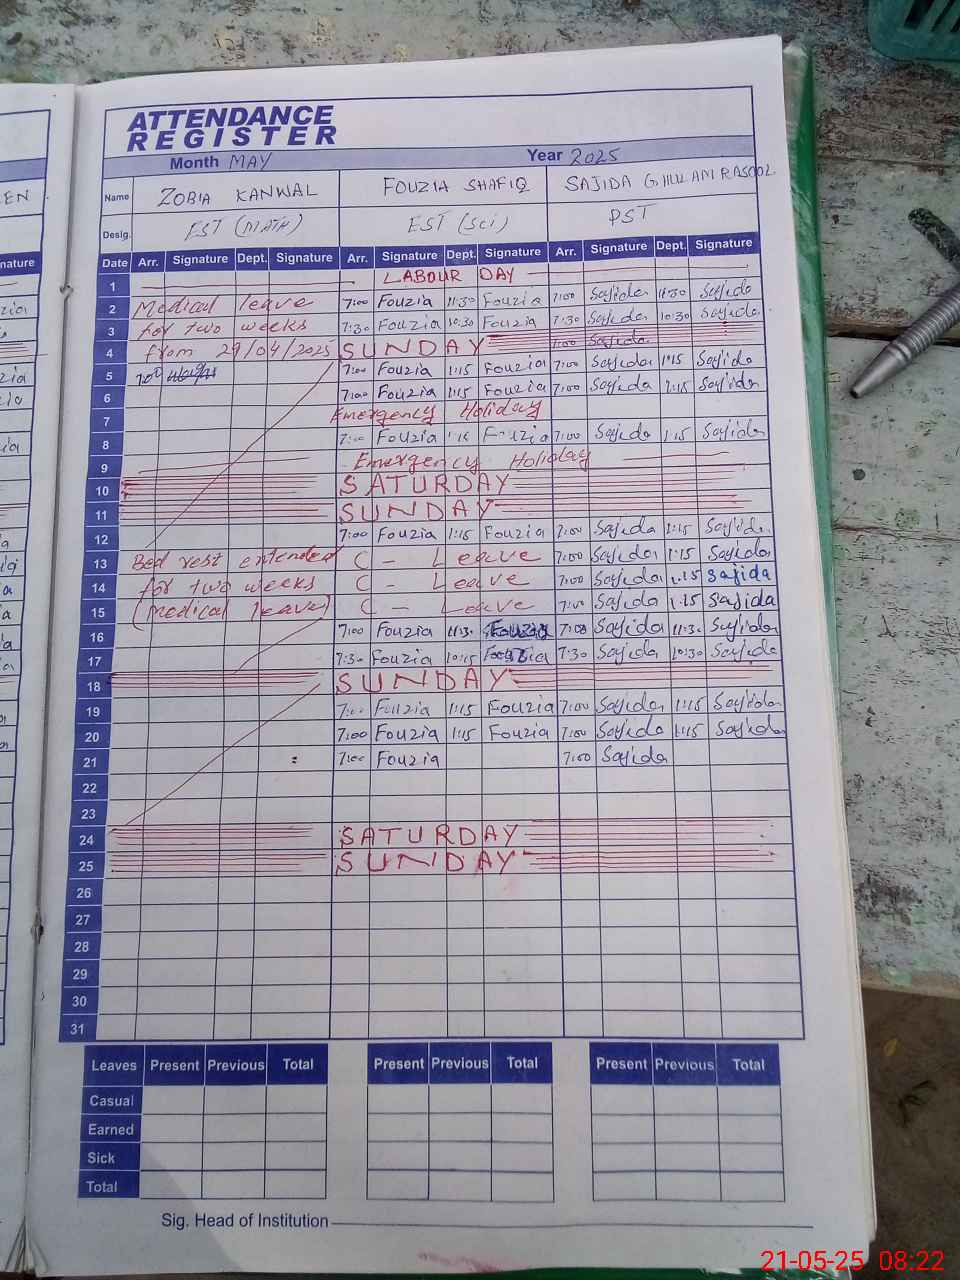 ATTENDANCE
REGISTER
Month MAY Year 2025
EEN Name ZOBIA KANWAL FOUZIA SHAFIQ SAJIDA GHULAM RASOOL
Desig. EST (MATH) EST (Sci) PST
nature Date Arr. Signature Dept. Signature Arr. Signature Dept. Signature Arr. Signature Dept. Signature
1 LABOUR DAY
2 Medical leave 7:00 Fouzia 11:30 Fouzia 7:00 Sajida 11:30 Sajida
3 for two weeks 7:30 Fouzia 10:30 Fouzia 7:30 Sajida 10:30 Sajida
4 from 29/04/2025 SUNDAY 7:00 Sajida
5 7:00 7:00 Fouzia 1:15 Fouzia 7:00 Sajida 1:15 Sajida
6 7:00 Fouzia 1:15 Fouzia 7:00 Sajida 1:15 Sajida
7 Emergency Holiday
8 7:00 Fouzia 1:15 Fouzia 7:00 Sajida 1:15 Sajida
9 Emergency Holiday
10 SATURDAY
11 SUNDAY
12 7:00 Fouzia 1:15 Fouzia 7:00 Sajida 1:15 Sajida
13 Bed rest extended C - Leave 7:00 Sajida 1:15 Sajida
14 for two weeks C - Leave 7:00 Sajida 1:15 Sajida
15 (medical leave) C - Leave 7:00 Sajida 1:15 Sajida
16 7:00 Fouzia 11:30 Fouzia 7:00 Sajida 11:30 Sajida
17 7:30 Fouzia 10:15 Fouzia 7:30 Sajida 10:30 Sajida
18 SUNDAY
19 7:00 Fouzia 1:15 Fouzia 7:00 Sajida 1:15 Sajida
20 7:00 Fouzia 1:15 Fouzia 7:00 Sajida 1:15 Sajida
21 7:00 Fouzia 7:00 Sajida
22
23
24 SATURDAY
25 SUNDAY
26
27
28
29
30
31
Leaves Present Previous Total Present Previous Total Present Previous Total
Casual
Earned
Sick
Total
Sig. Head of Institution
21-05-25 08:22